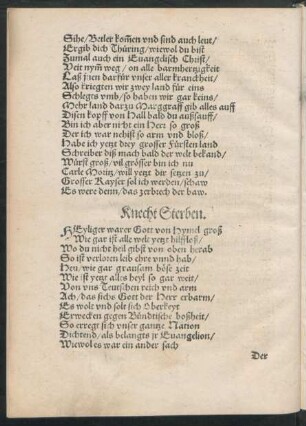 Sihe/ Betler kom̃en vnd sind auch leut/
Ergib dich Thüring/ wiewol du bist
Zumal auch ein Euangelisch Christ/
Veit nym̃ weg/ on alle barmhertzigkeit
Laß jnen darfür vnser aller kranckheit/
Also kriegten wir zwey land für eins
Schlegts vmb/ so haben wir gar keins/
Mehr land darzu Marggraff gib alles auff
Disen kopff von Hall bald du außsauff/
Bin ich aber nicht ein Herr so groß
Der ich war nehist so arm vnd bloß/
Habe ich yetzt drey grosser Fürsten land
Schreiber diß mach bald der welt bekand/
Würst groß/ vil grösser bin ich nu
Carle Moritz/ will yetzt dir setzen zu/
Grosser Kayser sol ich werden/ schaw
Es were denn/ das zerbrech der baw.
Knecht Sterben.
HEyliger warer Gott von Hymel groß
Wie gar ist alle welt yetzt hilffloß/
Wo du nicht heil gibst von oben herab
So ist verloren leib ehre vnnd hab/
Heu/ wie gar grausam böse zeit
Wie ist yetzt alles heyl so gar weit/
Von vns Teutschen reich vnd arm
Ach/ das sichs Gott der Herr erbarm/
Es wolt vnd solt sich Oberkeyt
Erwecken gegen Bündtische boßheit/
So erregt sich vnser gantze Nation
Dichtend/ als belangts jr Euangelion/
Wiewol es war ein ander sach
Der